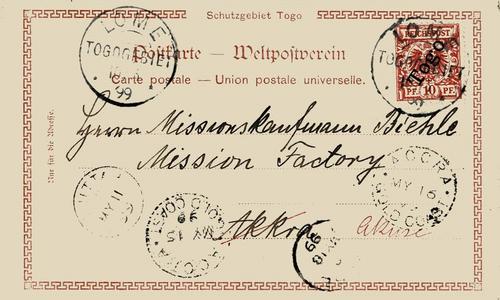 Schutzgebiet Togo
LOME
TOGOGEBIET
99
Postkarte – Weltpostverein
Carte postale – Union postale universelle.
REICHSPOST
TOGO
PF. 10 PF.
LOME
TOGOGEBIET
Nur für die Adresse.
Herrn Missionskaufmann Biehle
Mission Factory
Akkra
Akuse
ACCRA
MY 16
GOLD COAST
ACCRA
MY 15
99
GOLD COAST
MY 11
99